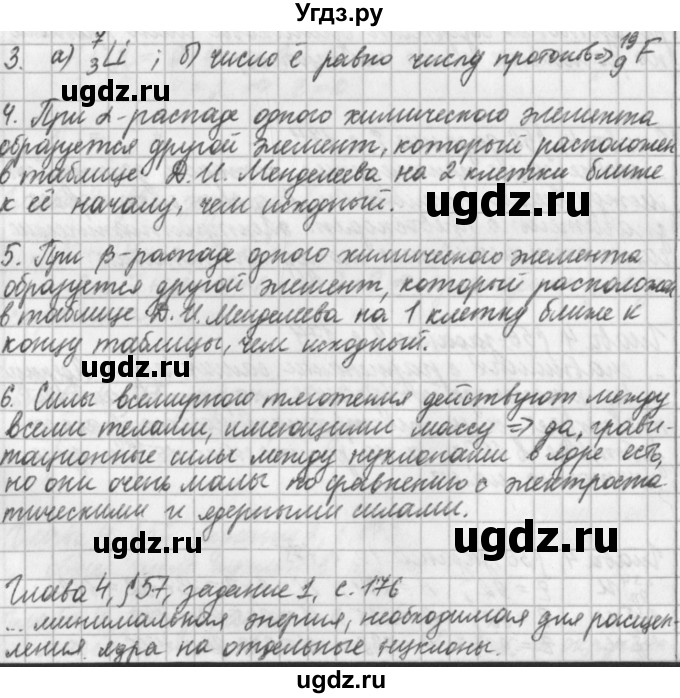 Угдз.ру
3. а) ⁷₃Li ; б) число ē равно числу протонов ⇒ ¹⁹₉F
ugdz.ru
ugdz.ru
4. При α-распаде одного химического элемента
образуется другой элемент, который расположен
в таблице Д.И. Менделеева на 2 клетки ближе
к её началу, чем исходный.
ugdz.ru
5. При β-распаде одного химического элемента
образуется другой элемент, который расположен
в таблице Д.И. Менделеева на 1 клетку ближе к
концу таблицы, чем исходный.
ugdz.ru
ugdz.ru
6. Силы всемирного тяготения действуют между
всеми телами, имеющими массу ⇒ да, грави-
тационные силы между нуклонами в ядре есть,
но они очень малы по сравнению с электроста-
тическими и ядерными силами.
ugdz.ru
ugdz.ru
Глава 4, § 57, задание 1, с. 176
... минимальная энергия, необходимая для расщеп-
ления ядра на отдельные нуклоны.
ugdz.ru
ugdz.ru